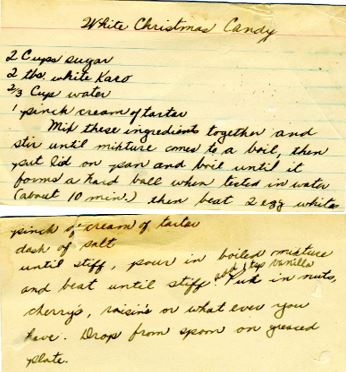 White Christmas Candy
2 Cups sugar
2 tbs white Karo
2/3 Cup water
1 pinch cream of tartar
Mix these ingredients together and
stir until mixture comes to a boil, then
put lid on pan and boil until it
forms a hard ball when tested in water
(about 10 min.) then beat 2 egg whites
pinch of cream of tartar
dash of salt
until stiff, pour in boiled mixture
and beat until stiff. add 1 tsp vanilla Put in nuts,
cherry's, raisins or what ever you
have. Drop from spoon on greased
plate.